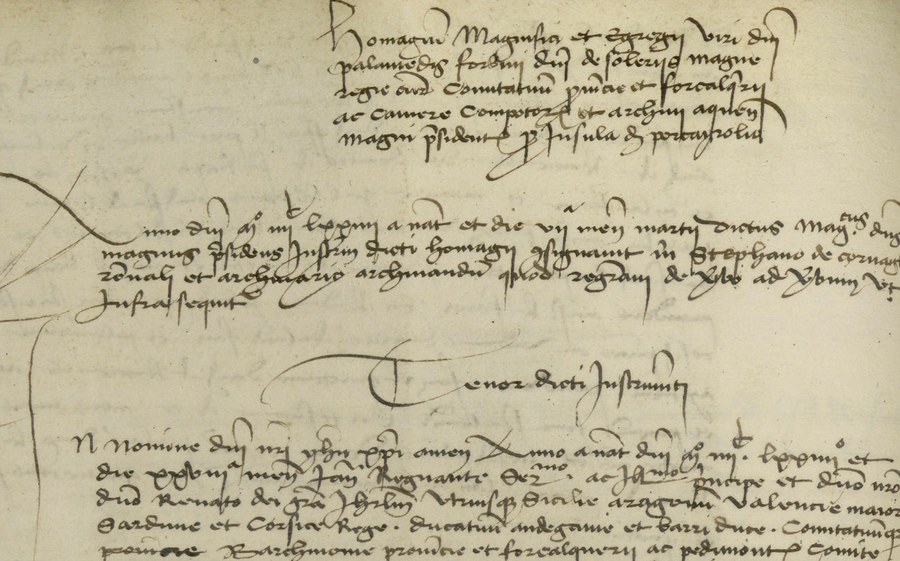 Homagium Magnifici et Egregii viri dni
palamedis forbini dni de soleriis magne
regie curie Comitatuum provincie et forcalquerii
ac Camere Compotorum et archivi aquen
magni presidentis pro Insula de porcayrolis
Anno dni mo iiiic lxxiiii a nat et die viia men martii dictus magcus dns
magnus presidens Instrm dicti homagii consignavit m Stephano de
ronali et archivario archivandum quod registravi de ad ut
Infra sequitur
Tenor dicti Instrumenti
N Nomine dni nri yhu xpi amen Anno a nat dni mo iiiic lxxiiiio et
die xxviiia men Regnante Sermo ac Illmo principe et dno nro
dno Renato dei gra Jhrlm utriusque Sicilie aragonum Valencie maior
Sardinie et Corsice Rege ducatuum andegavie et barri duce Comitatuumque
provincie Barchinonie provincie et forcalquerii ac pedimontis Comite